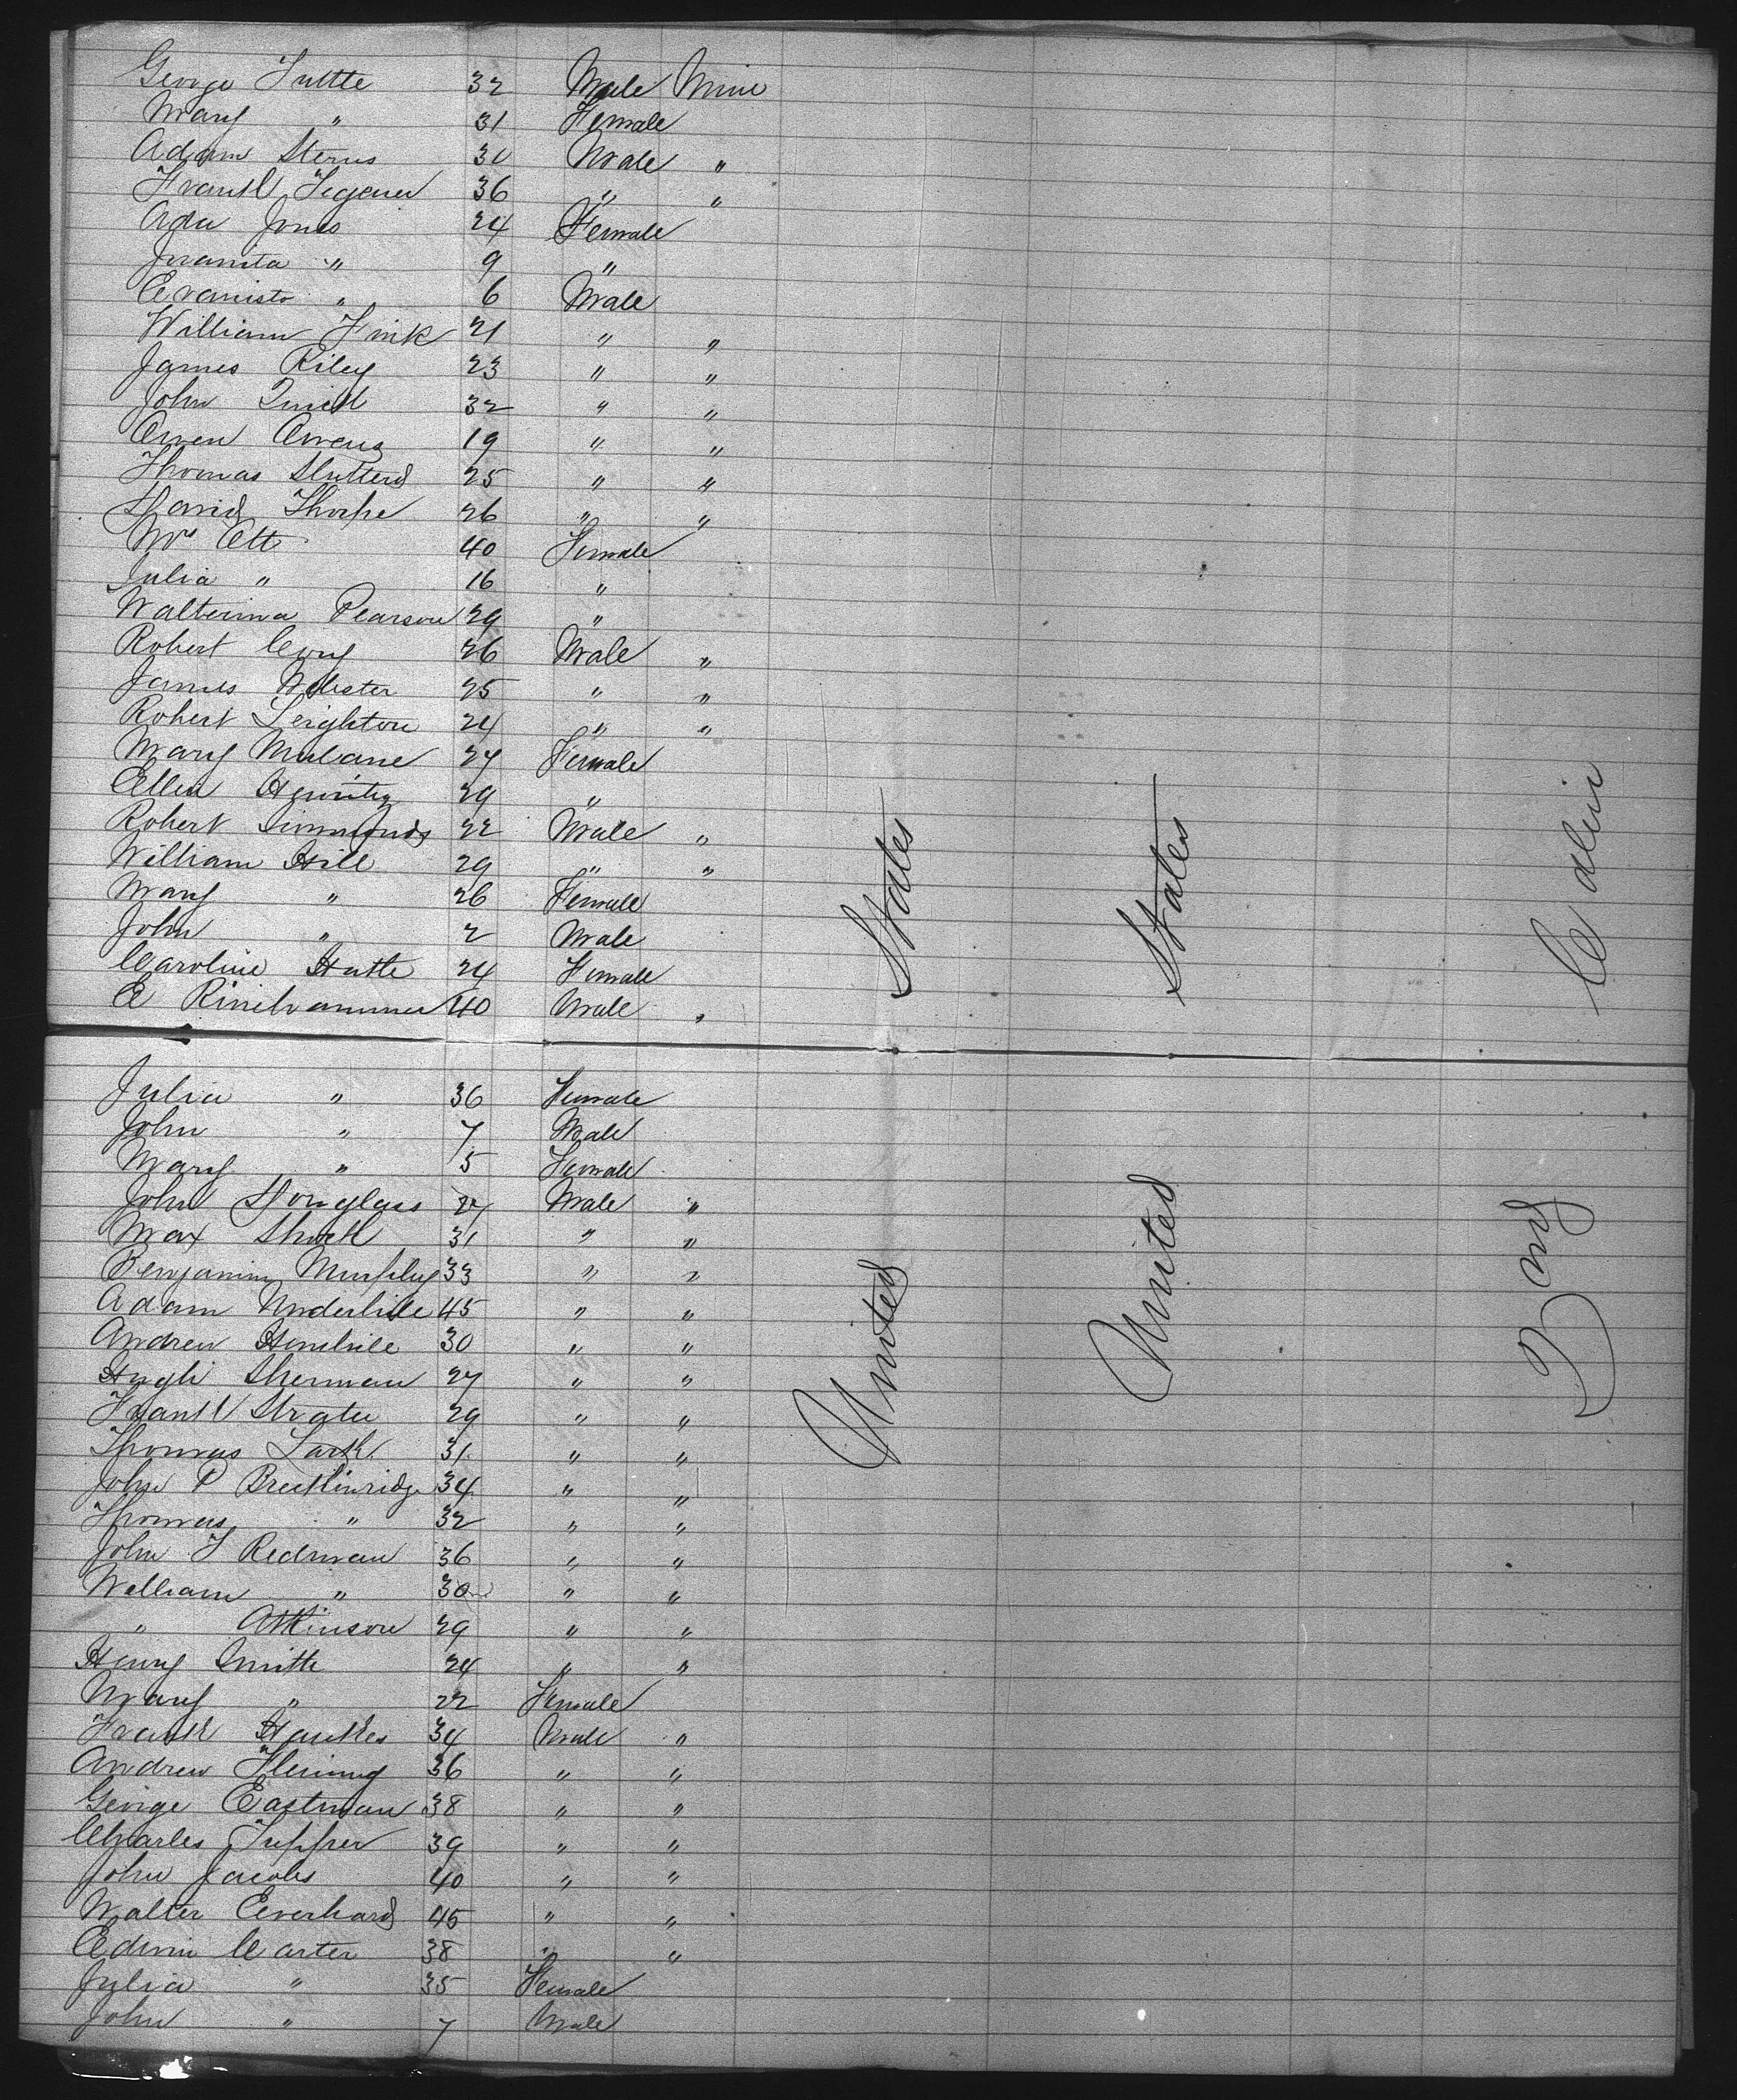 George Tuttle 32 Male Mine
Mary " 31 Female
Adam Sterns 30 Male "
Frank 36 " "
Ada Jones 24 Female
Juanita " 9 "
Evanisto " 6 Male
William Fink 21 " "
James Riley 23 " "
John 32 " "
Owen Owens 19 " "
Thomas 25 " "
David Thorpe 26 " "
Mrs Ott 40 Female
Julia " 16 "
Walterina Pearson 29 "
Robert Cory 26 Male "
James Webster 25 " "
Robert Leighton 24 " "
Mary 27 Female
Ellen 29 "
Robert Simmonds 22 Male "
William Hill 29 " "
Mary " 26 Female
John " 2 Male
Caroline 24 Female
E 40 Male "
Julia " 36 Female
John " 7 Male
Mary " 5 Female
John Douglass 27 Male "
Max Shock 31 " "
Benjamin Murphy 33 " "
Adam 45 " "
Andrew 30 " "
Hugh Sherman 27 " "
Frank 29 " "
Thomas Lark 31 " "
John P Breckinridge 34 " "
Thomas " 32 " "
John T Redman 36 " "
William " 30 " "
" Atkinson 29 " "
Henry Smith 24 " "
Mary " 22 Female
Frank Hawkes 34 Male "
Andrew Fleming 36 " "
George Eastman 38 " "
Charles Tupper 39 " "
John Jacobs 40 " "
Walter Everhard 45 " "
Edwin Carter 38 " "
Julia " 35 Female
John " 7 Male
United States
United States
Cabin